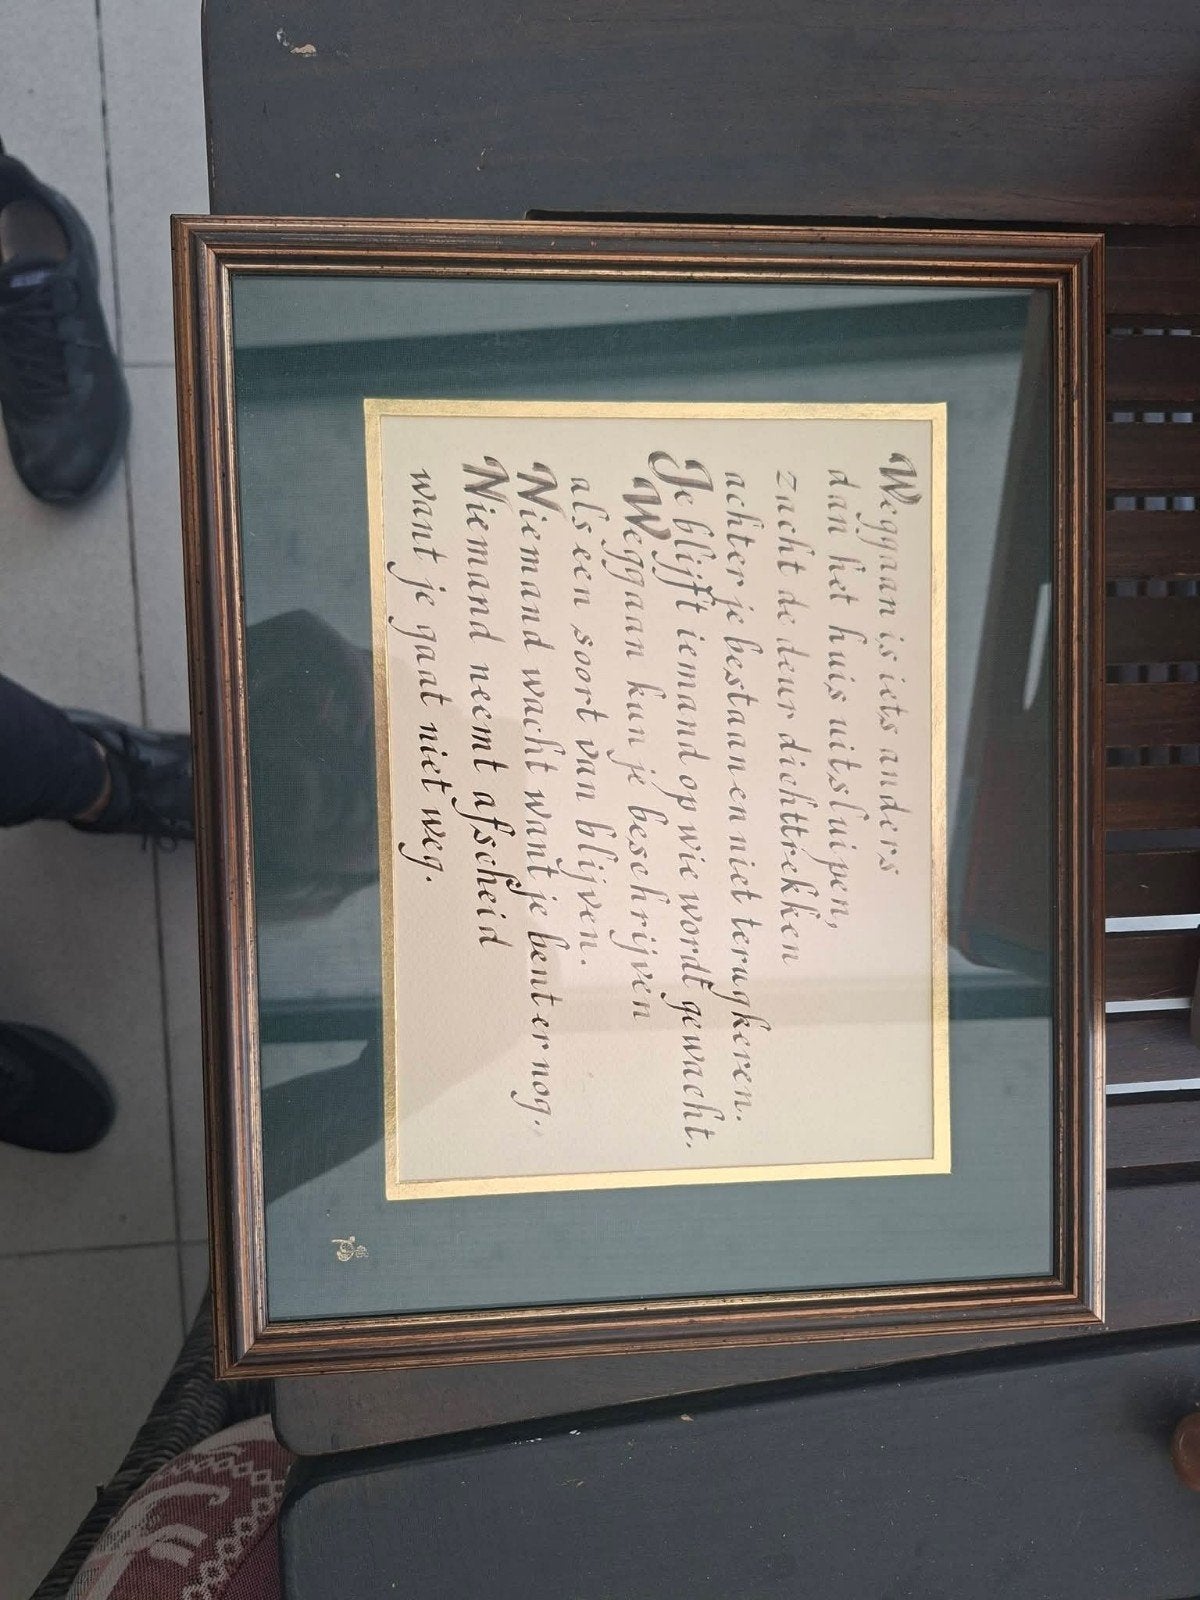 Weggaan is iets anders
dan het huis uitsluipen,
zacht de deur dichttrekken
achter je bestaan en niet terugkeren.
Je blijft iemand op wie wordt gewacht.
Weggaan kun je beschrijven
als een soort van blijven.
Niemand wacht want je bent er nog.
Niemand neemt afscheid
want je gaat niet weg.